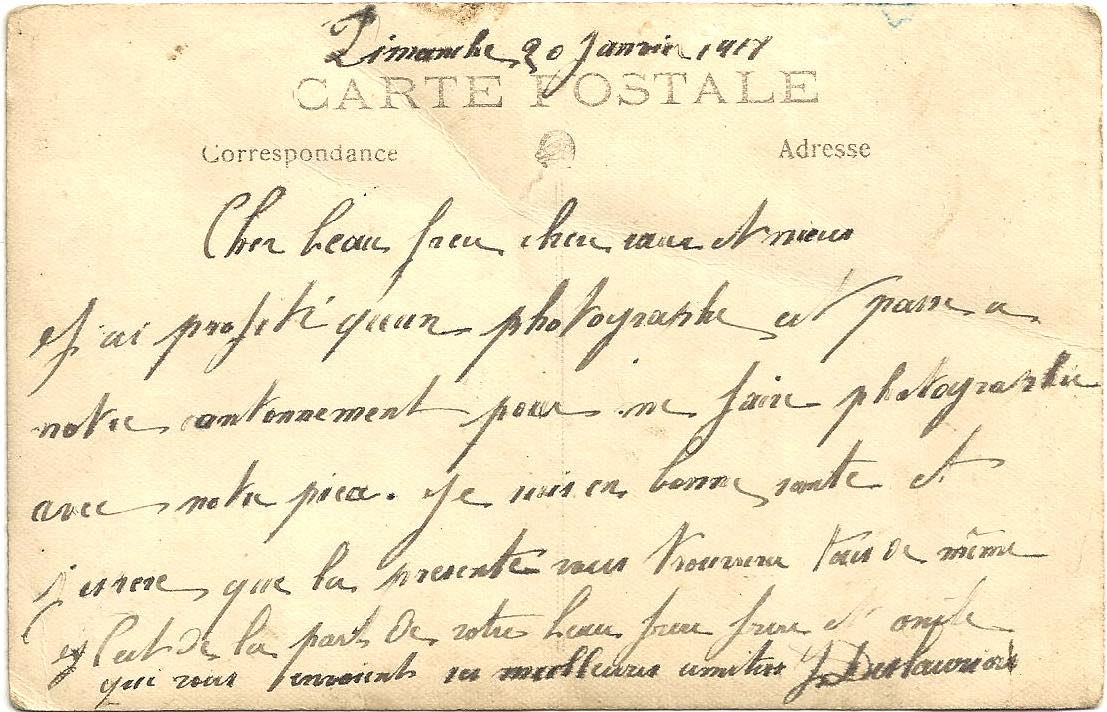 Dimanche 20 Janvier 1918
CARTE POSTALE
Correspondance
Adresse
Cher beau frere chere sœur et nieces
J'ai profité qu'un photographe et passe a
notre cantonnement pour me faire photographie
avec notre piece. Je suis en bonne sante et
j'espere que la presente vous trouvera tous de même
C'est de la part de votre beau frere frere et oncle
qui vous envoient ses meilleures amities J.